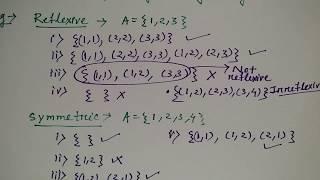 eg> Reflexive → A={1,2,3}
i> {(1,1), (2,2) (3,3)} ✓
ii> {(1,1), (2,2) (3,3) (1,2), (2,3)} ✓
iii> {(1,1), (1,2), (3,3)} X > Not reflexive
iv> { } X • {(1,2),(2,3)(3,4)} Irreflexive
Symmetric → A={1,2,3,4}
i> { } ✓ v> {(1,1), (1,2), (2,1)} ✓
ii> {1,2} X
iii> {(1,2) (2,1)} ✓